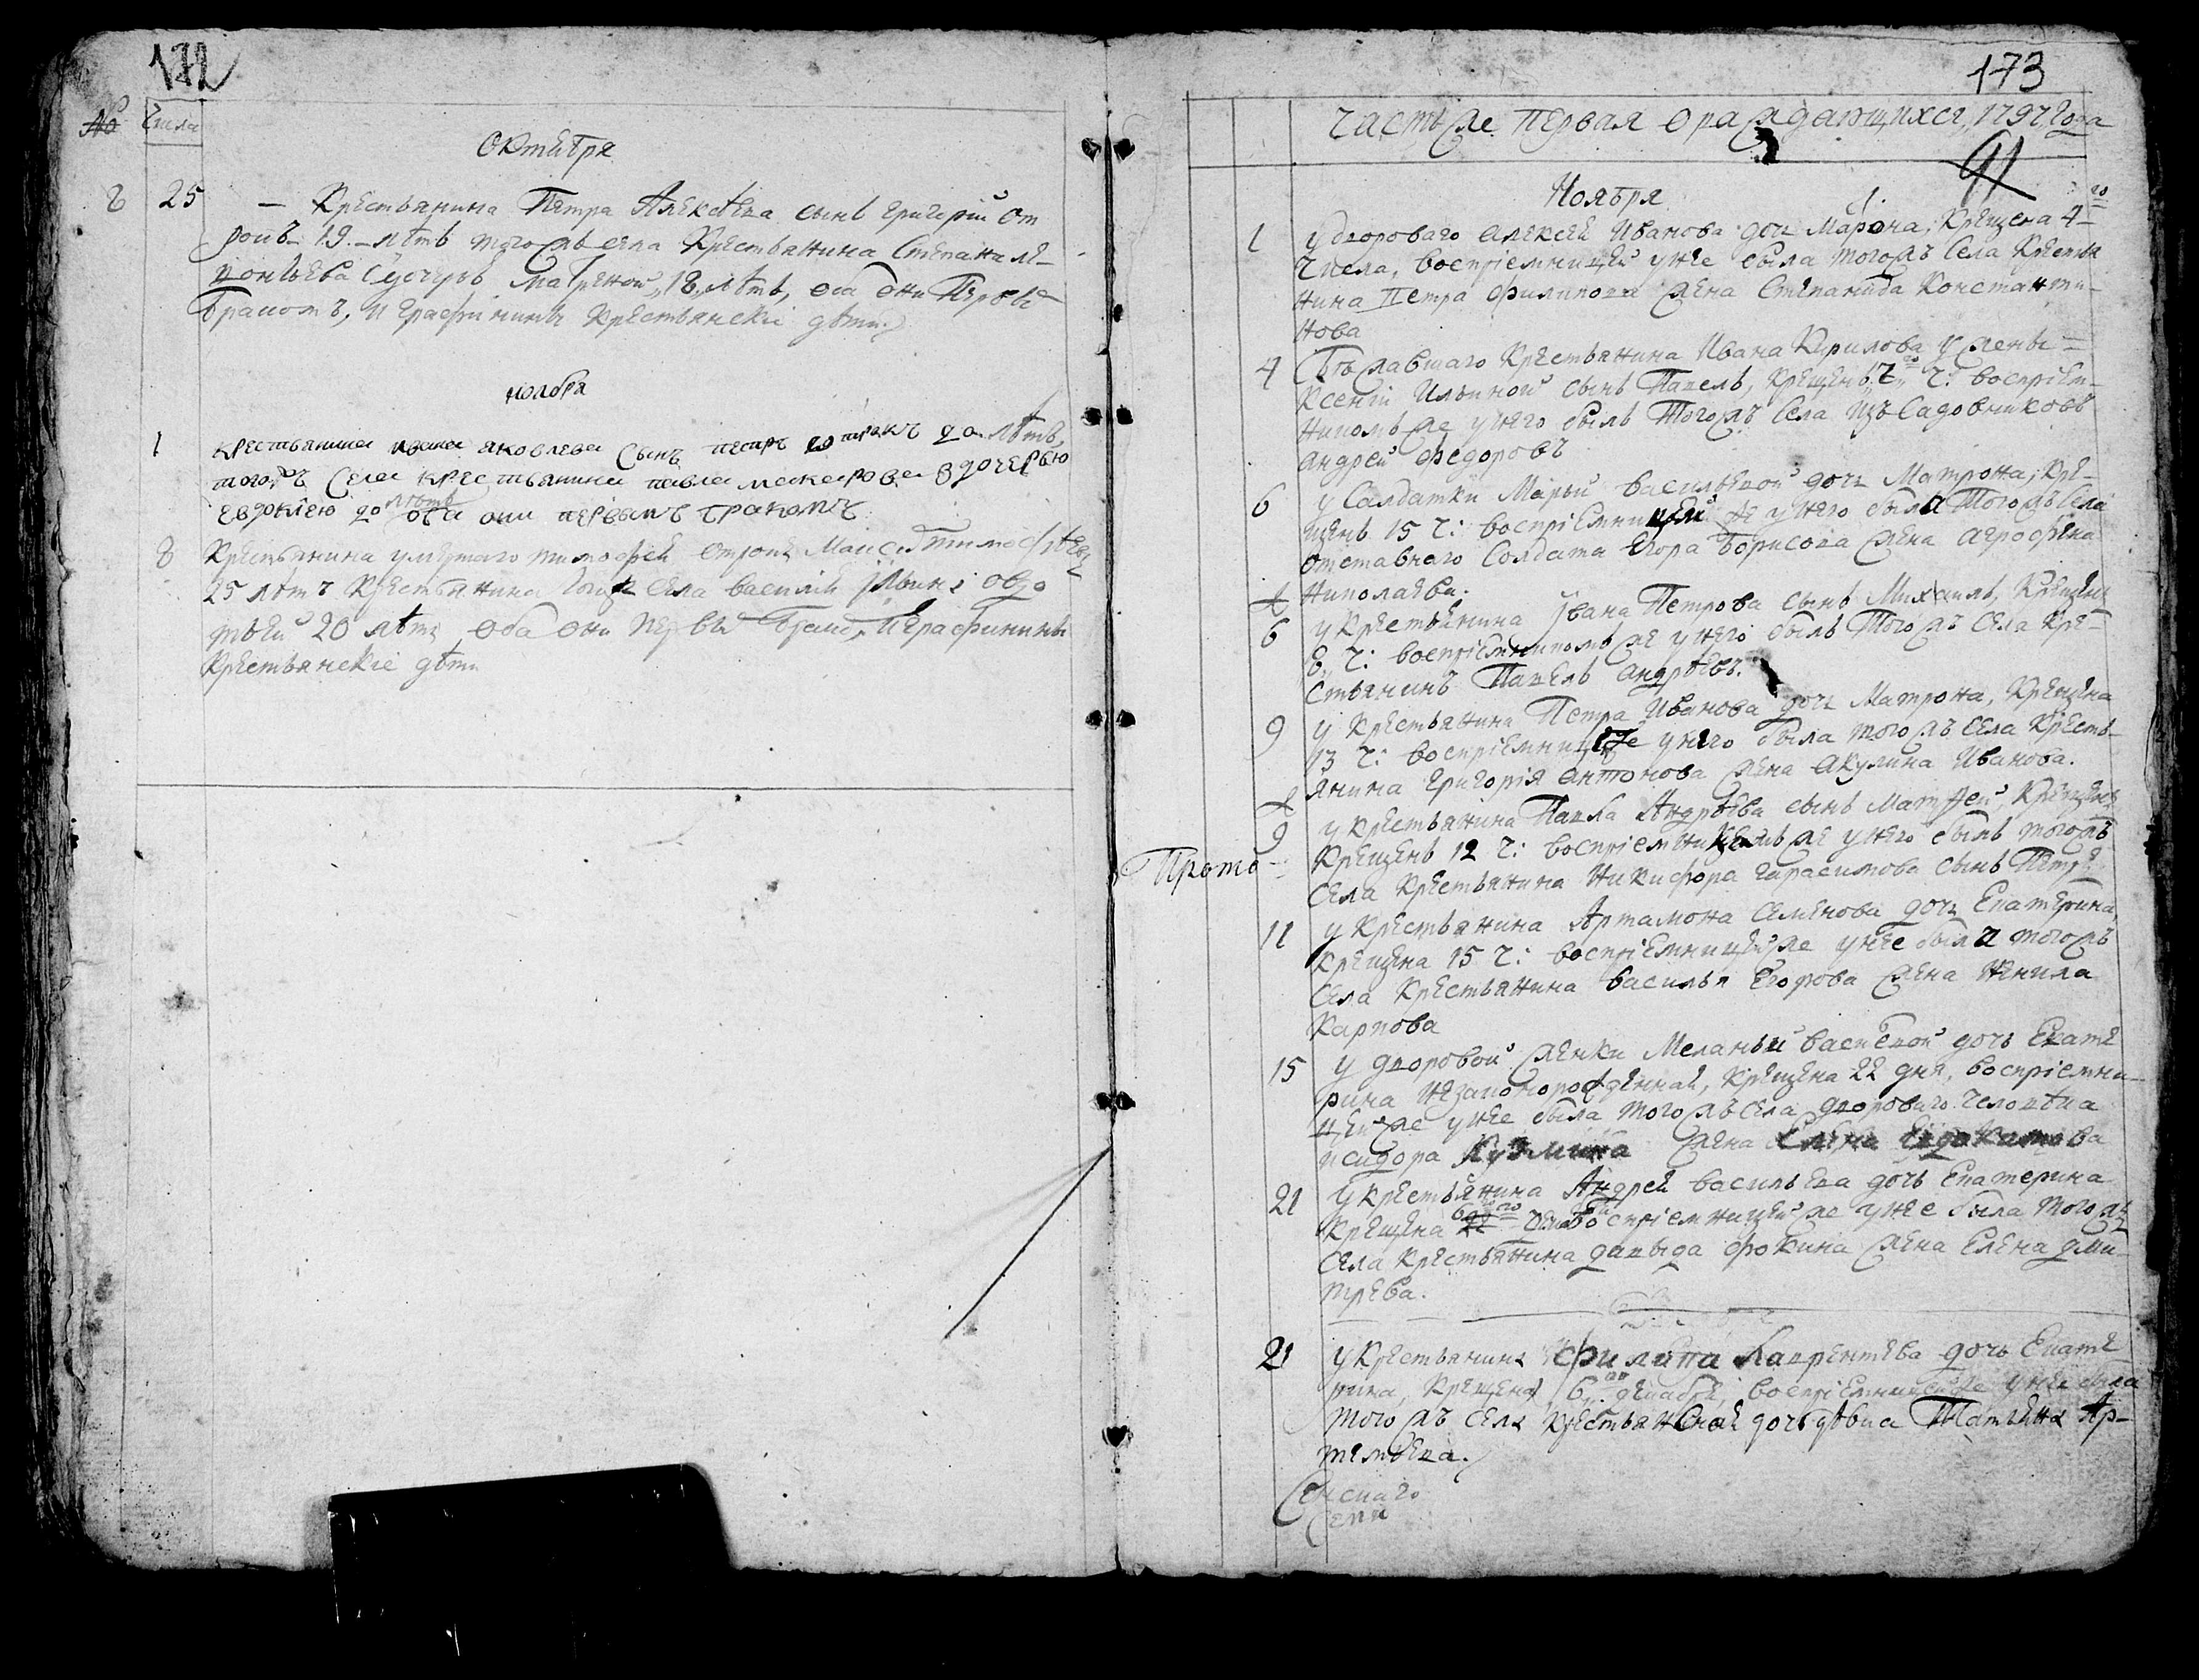 172
№ Числа
Октября
25 — Крестьянина Петра Алексѣева сынъ Григорій от
рокъ 19. лѣтъ тогожъ села Крестьянина Степана Ле-
Матреной, 18, лѣтъ, оба они Первы
Бракомъ, и Графинины Крестьянскіе дѣти
ноября
1 крестьянина яковлева Сынъ петръ отрокъ 20 лѣтъ,
тогожъ Села крестьянина павла макарова з дочерью
евдокіею 20 лѣтъ оба они первымъ бракомъ
8 Крестьянина умершаго тимофея отрокъ тимофѣевъ
25 лѣтъ Крестьянина села василія
20 лѣтъ оба они Графинины
Крестьянскіе дѣти
173
часть же первая о раждающихся, 1797, года
91
Ноября
1 у двороваго алексея Иванова дочь Марѳна, Крещена 4 го
числа, воспріемницей у нее была тогожъ Села Крестья
нина Петра Филипова жена Степанида Константи-
нова
4 Крестьянина Ивана Кирилова у жены
Ксеніи Ильиной сынъ Павелъ, Крещенъ 7, ч: воспріем-
никомъ же у него былъ Тогожъ Села изъ Садовниковъ
андрей Федоровъ
6 у Салдатки Марьи Васильевой дочь Матрона, кре-
щенъ 15 ч: воспріемницей же у него была Тогожъ Села
отставнаго Солдата Егора Борисова жена Агрофена
Николаева.
6 у Крестьянина Ивана Петрова сынъ Михаилъ, Крещенъ
8, ч: воспріемникомъ же у него былъ Тогожъ Села Кре-
стьянинъ Павелъ андрѣевъ.
9 у Крестьянина Петра Иванова дочь Матрона, Крещена
13 ч: воспріемницей же у него была тогожъ Села Кресть-
янина Григорія антонова жена акулина Иванова.
9 у Крестьянина Павла Андрѣева сынъ Матфей, Крещенъ
Крещенъ 12 ч: воспріемникомъ же у него былъ тогожъ
Села Крестьянина Никифора Гарасимова сынъ Петръ
Прото-
11 у Крестьянина Артамона Семенова дочь Екатерина,
Крещена 15 ч: воспріемницей же у нее была тогожъ
Села Крестьянина василья Егорова жена Ненила
Карпова
15 у дворовой женки Меланьи васильевой дочь Екате
рина незаконорожденная, Крещена 22 дня, воспріемни-
цей же у нее была тогожъ села двороваго человѣка
исидора Кузмина жена Елена Евдокимова
21 у Крестьянина Андрея васильева дочь Екатерина
Крещена воспріемницей же у нее была тогожъ
Села Крестьянина давыда Фокина жена Елена дми-
трева.
21 у Крестьянина Филипа Лаврентьева дочь Екате
рина, Крещена 6, го декабря, воспріемницей же у нее была
того жъ села крестьянская дочь дѣвка Татьяна Ар-
темьева.